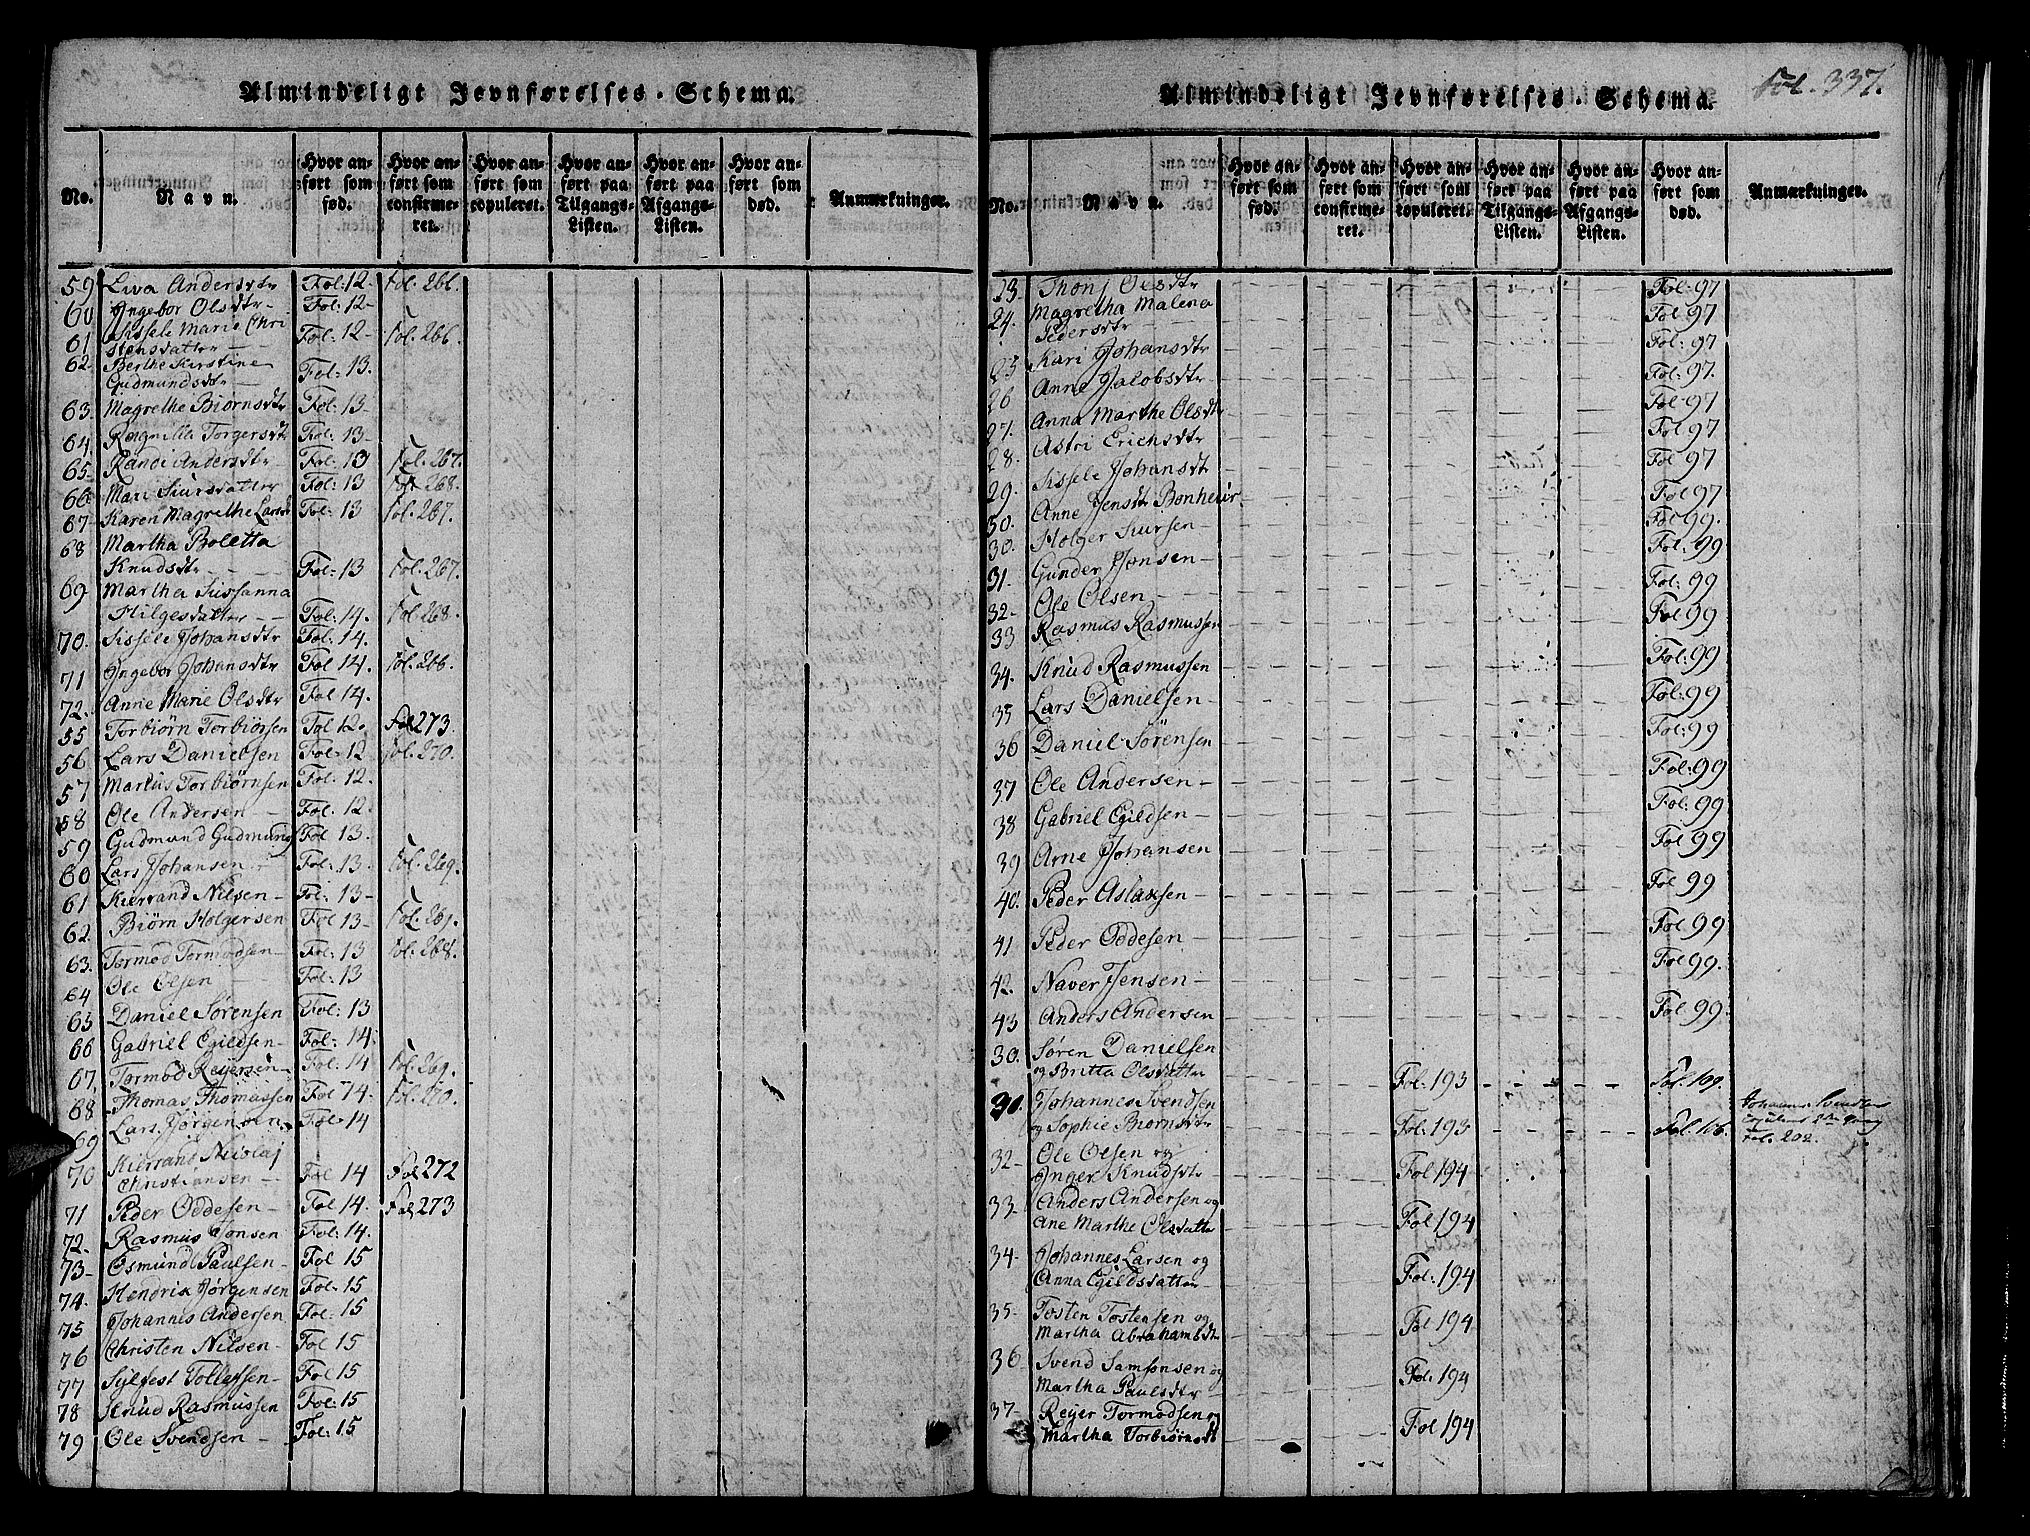 Almindeligt Jevnførelses-Schema.
No. Navn. Hvor anført som fød. Hvor anført som confirmeret. Hvor anført som copuleret. Hvor anført paa Tilgangs-Listen. Hvor anført paa Afgangs-Listen. Hvor anført som død. Anmærkninger.
59 Liva Andersdtr Fol: 12- Fol. 266.
60 Ingebor Olsdtr- Fol: 12-
61 Sissele Marie Chri
stensdatter Fol: 12- Fol. 266.
62 Berthe Kirstine
Gudmundsdtr Fol: 13.
63. Magrethe Biørnsdtr Fol: 13-
64. Ragnille Torgersdtr Fol: 13-
65. Randi Andersdtr- Fol: 13 Fol. 267.
66 Mari Siursdatter Fol: 13 Fol. 268.
67- Karen Magrethe Larsd Fol: 13 Fol. 267.
68 Martha Boletta
Knudsdtr Fol: 13 Fol. 267.
69. Martha Sussanna
Hilgesdatter Fol: 14. Fol. 268.
70. Sissele Johansdtr Fol: 14.
71 Ingebor Johansdtr Fol 14. Fol. 266.
72. Anne Marie Olsdtr Fol 14.
55 Torbiørn Torbiørsen Fol 12. Fol 273.
56 Lars Danielsen Fol: 12 Fol. 270.
57 Markus Torbiørnsen Fol: 12.
58 Ole Andersen Fol: 12.
59 Gudmund Gudmunds Fol 13.
60 Lars Johansen Fol: 13. Fol. 269.
61 Kierrand Nilsen- Fol: 13-
62. Biørn Holgersen Fol 13- Fol. 269.
63. Tormod Tormodsen- Fol: 13 Fol. 268.
64 Ole Olsen Fol: 13
65 Daniel Sørensen Fol: 13
66 Gabriel Egildsen- Fol: 14.
67. Tormod Reijersen- Fol: 14 Fol. 269.
68. Thomas Thomassen Fol 14. Fol. 270.
69 Lars Jørgensen Fol: 14
70 Kierrand Nicolaj
Christiansen Fol 14 Fol 272
71 Peder Oddesen- Fol 14. Fol 273
72. Rasmus Jonsen Fol: 14.
73- Osmund Paulsen- Fol 15
74. Hendria Jørgensen Fol: 15
75 Johannes Andersen Fol: 15
76 Christen Nilsen- Fol 15
77 Silfest Tollefsen- Fol 15
78 Knud Rasmussen Fol: 15
79 Ole Svendsen- Fol: 15
Almindeligt Jevnførelses-Schema.
Fol. 337.
No. Navn. Hvor anført som fød. Hvor anført som confirmeret. Hvor anført som copuleret. Hvor anført paa Tilgangs-Listen. Hvor anført paa Afgangs-Listen. Hvor anført som død. Anmærkninger.
23. Thonj Olsdtr Fol: 97
24. Magretha Malena
Pedersdtr Fol 97
25 Kari Johansdtr Fol: 97
26 Anne Jacobsdtr Fol: 97.
27. Anna Marthe Olsdtr Fol 97
28. Astri Erichsdtr Fol 97
29. Sissele Johansdtr Fol 97
30. Anne Jensdtr Bonheur Fol 97
30. Holger Siursen- Fol 99.
31. Gunder Jonsen- Fol. 99
32- Ole Olsen Fol: 99
33 Rasmus Rasmussen Fol 99
34. Knud Rasmussen Fol: 99
35 Lars Danielsen- Fol: 99
36 Daniel Sørensen Fol: 99
37 Ole Andersen- Fol: 99
38 Gabriel Egildsen- Fol: 99
39 Arne Johansen Fol 99
40. Peder Aslaxsen- Fol 99
41 Peder Oddesen- Fol 99
42. Naver Jensen- Fol 99.
43 Anders Andersen Fol 99.
30. Søren Danielsen
og Britta Olsdatter Fol: 193 Fol. 109.
30. Johannes Svendsen
og Sophie Biørnsdtr Fol: 193 Fol. 106.
Fol: 202.
32- Ole Olsen og
Inger Knudsdtr Fol 194
33- Anders Andersen og
Ane Marthe Olsdatter Fol 194
34- Johannes Larsen og
Anna Egildsdatter Fol: 194
35- Tosten Tostensen og
Martha Abrahamsdtr Fol 194
36- Svend Samsonsen og
Martha Paulsdtr Fol: 194
37- Reijer Tormodsen og
Martha Torbiørnsdtr Fol 194